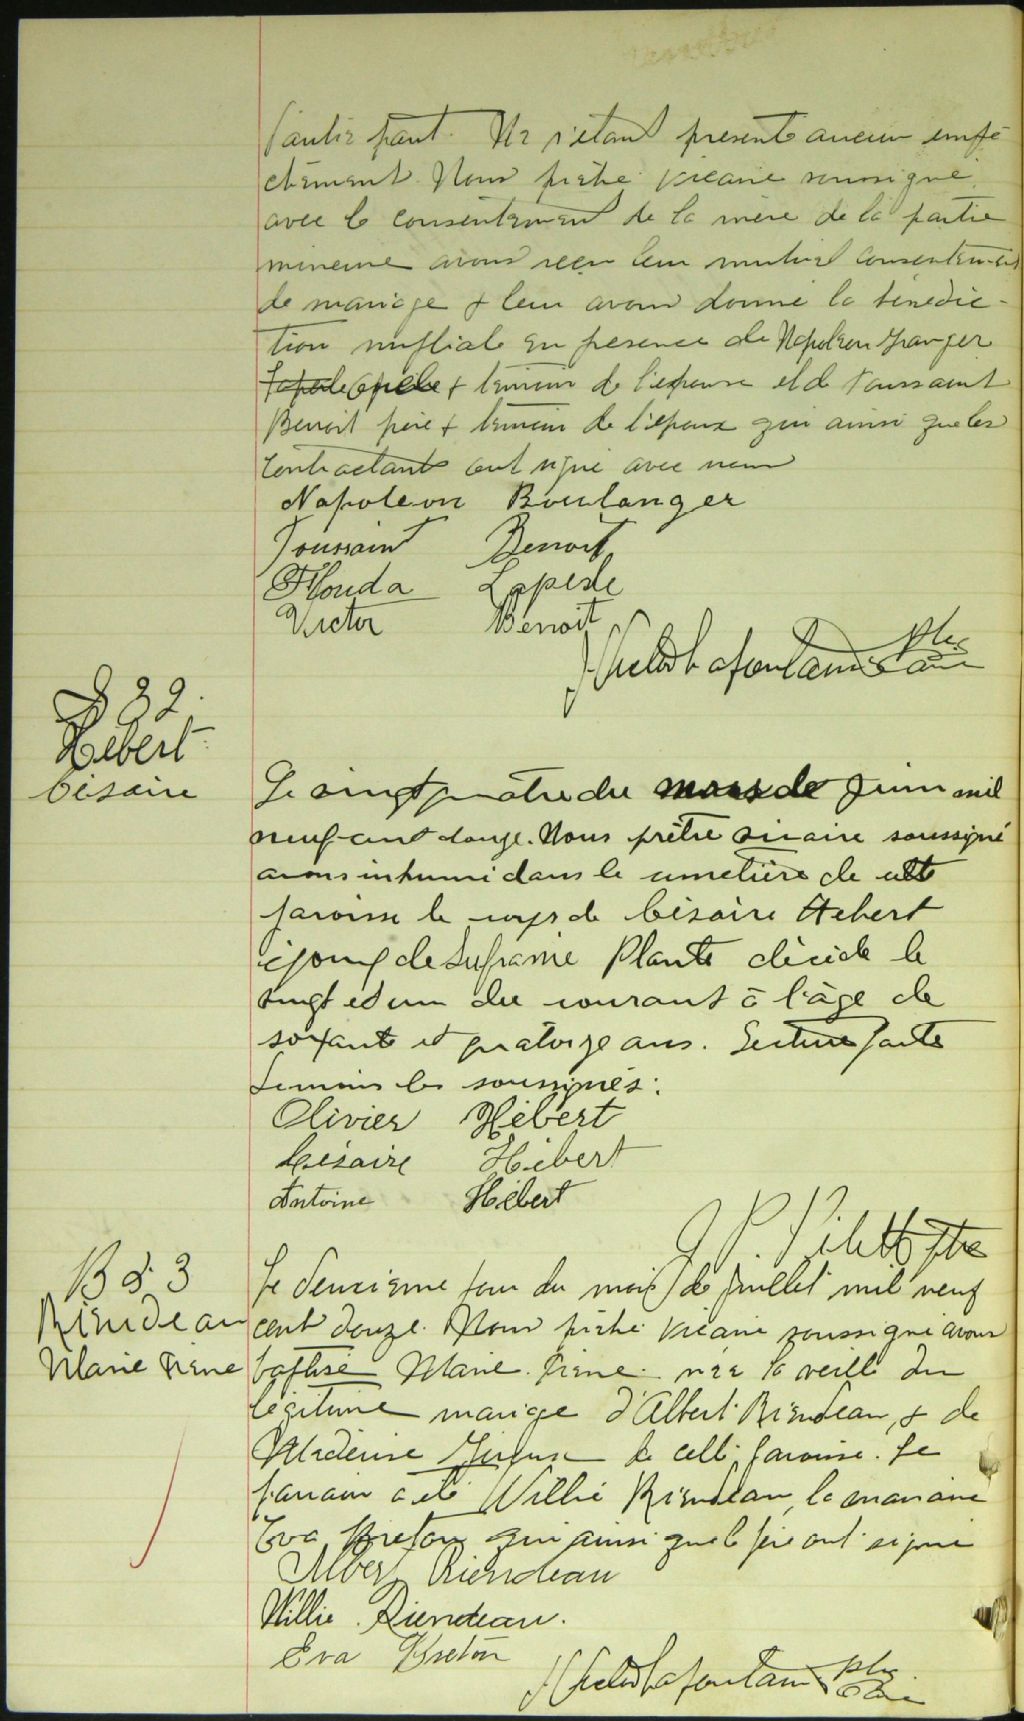 d'autre part. Ne s'étant présenté aucun empê
chement Nous prêtre vicaire soussigné
avec le consentement de la mère de la partie
mineure avons reçu leur mutuel consentement
de mariage & leur avons donné la bénédic-
tion nuptiale en présence de Napoléon
témoin de l'épouse et de Toussaint
Benoit père & témoin de l'époux qui ainsi que les
contractants ont signé avec nous
Napoleon Boulanger
Toussaint Benoit
Florida
Victor Benoit
J. Victor Lafontaine ptre
vicaire
S 82.
Hébert
Césaire
Le vingt quatre du mois de Juin mil
neuf cent douze. Nous prêtre vicaire soussigné
avons inhumé dans le cimetière de cette
paroisse le corps de Césaire Hebert
époux de Euphrasie Plante décédé le
vingt et un du courant à l'âge de
soixante et quatorze ans. Lecture faite
témoins les soussignés:
Olivier Hébert
Césaire Hébert
Antoine Hébert
J. P. Pilette ptre
B 83
Riendeau
Marie Irène
Le deuxième jour du mois de juillet mil neuf
cent douze. Nous prêtre vicaire soussigné avons
baptisé Marie Irène née la veille du
légitime mariage d'Albert Riendeau & de
de cette paroisse. Le
parrain a été Willie Riendeau, la marraine
Eva Breton qui ainsi que le père ont signé
Albert Riendeau
Willie Riendeau.
Eva Breton
J Victor Lafontaine ptre
vicaire